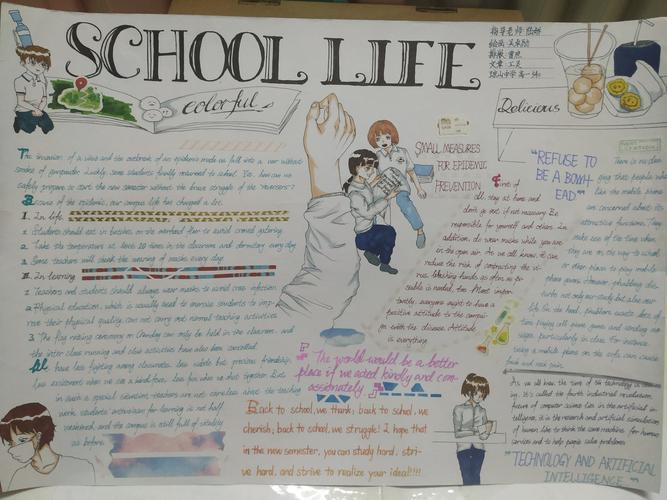 SCHOOL LIFE
colorful
指导老师
Delicious
The invasion of a virus and the outbreak of an epidemic made us fall into a war without
smoke of gunpowder. Luckily, some students finally returned to school. So, how can we
safely prepare to start the new semester without the brave struggle of the
Because of the epidemic, our campus life has changed a lot.
I. In life
1. Students should eat in batches on the overhead floor to avoid crowd gathering
2. Take the temperature at least 10 times in the classroom and dormitory every day
3. Some teachers will check the wearing of masks every day.
II. In learning
1. Teachers and students should always wear masks to avoid cross infection.
2. Physical education, which is usually used to exercise students to imp-
rove their physical quality, can not carry out normal teaching activities.
3. The flag raising ceremony on Monday can only be held in the classroom, and
the inter class running and other activities have also been cancelled.
We have less fighting among classmates, less noble but precious friendship.
Less excitement when we see a hard time, less fun when we
in such a special situation, teachers are not careless about the teaching
work, students' enthusiasm for learning is not half
weakened, and the campus is still full of vitality
as before.
SMALL MEASURES
FOR EPIDEMIC
PREVENTION
First of
all, stay at home and
don't go out if not necessary. Be
responsible for yourself and others. In
addition, do wear masks while you are
in the open air. As we all know, it can
reduce the risk of contracting the vi-
rus. Washing hands as often as po-
ssible is needed, too. Most impor-
tantly, everyone ought to have a
positive attitude to the campai-
gn with the disease. Attitude
is everything.
"REFUSE TO
BE A BOWH
EAD"
There is no den-
ying that people who
like the mobile phone
are concerned about its
attractive functions. They
make use of the time when
they are on the way to school
or other places to play mobile-
phone games. However, phubbing dis-
turbs not only our study, but also our
life. On the hand, phubbers waste lots of
time playing cell phone games and sending me-
ssages, particularly in class. For instance,
using a mobile phone on the sofa can cause
back and neck pain.
"The world would be a better
place if we acted kindly and com-
passionately."
Back to school, we thank; back to school, we
cherish; back to school, we struggle! I hope that
in the new semester, you can study hard, stri-
ve hard, and strive to realize your ideal!!!!
As we all know, the time of technology is com-
ing. It's called the fourth industrial revolution.
future of computer science lies in the artificial in-
telligence, it is the research and artificial simulation
of human like to think the same machine, for human
services and to help people solve problems.
"TECHNOLOGY AND ARTIFICIAL
INTELLIGENCE"